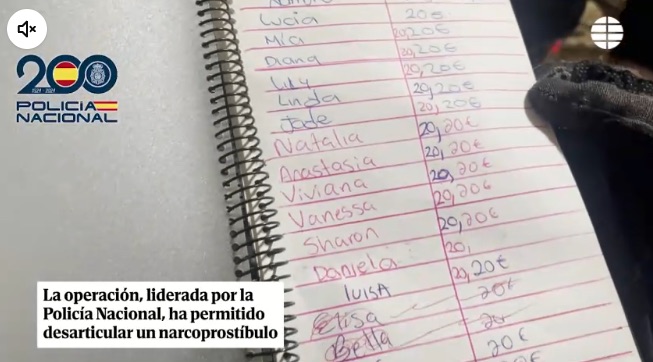 Nombre
Lucia 20€
Mia 20,20€
Diana 20,20€
Lily 20,20€
Linda 20,20€
Jade 20,20€
Natalia 20,20€
Anastasia 20,20€
Viviana 20,20€
Vanessa 20,20€
Sharon 20,20€
Daniela 20,
luisA 20,20€
Elisa 20€
Bella 20
20€
200
1824-2024
POLICÍA
NACIONAL
La operación, liderada por la
Policía Nacional, ha permitido
desarticular un narcoprostíbulo